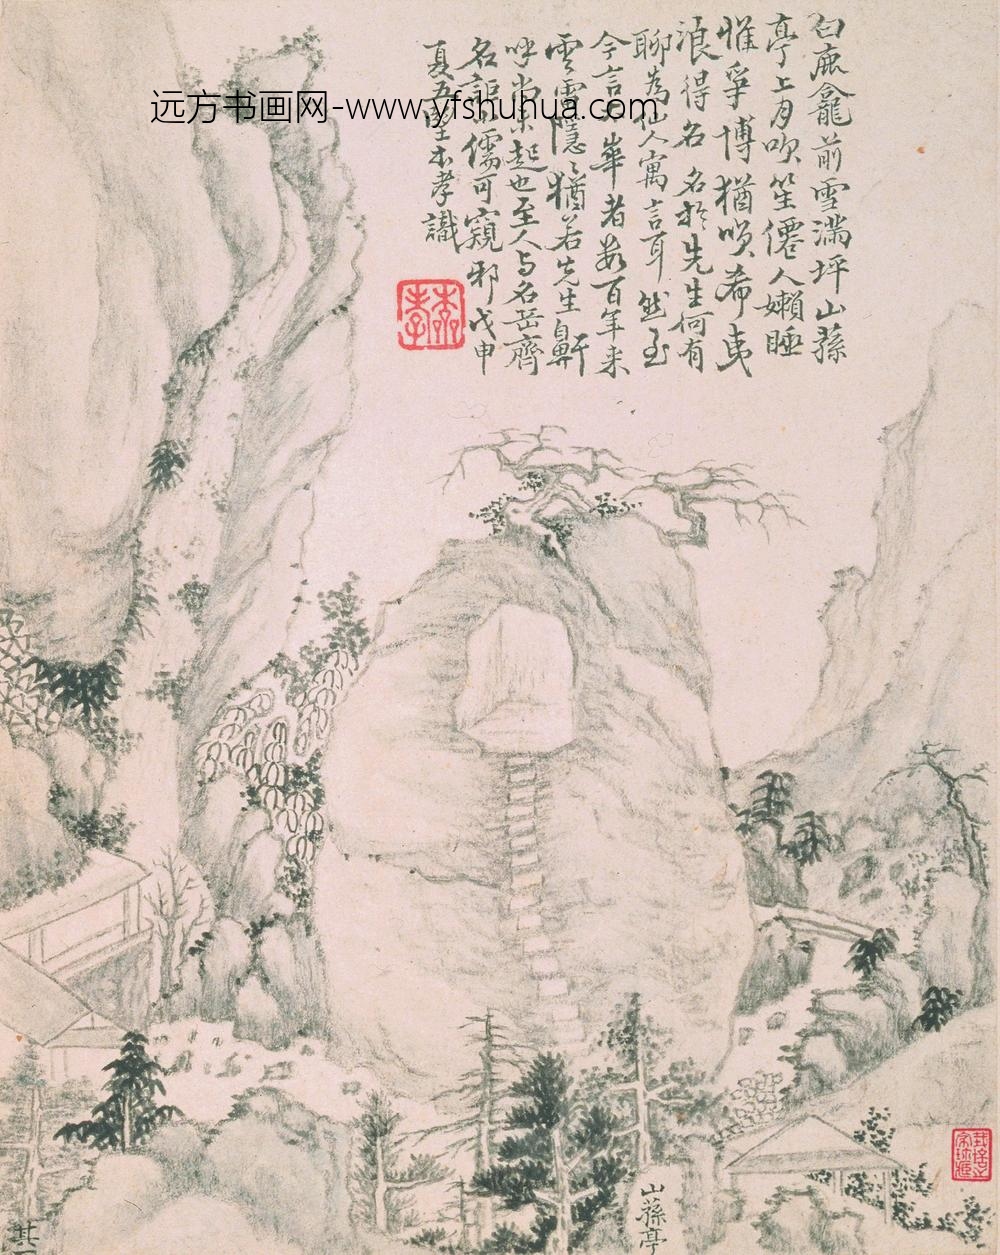 白鹿龕前雪滿坪山蓀
亭上月吹笙僊人嬾睡
惟爭博猶唄希夷
浪得名 名於先生何有
聊為仙人寓言耳然至
今言 華者數百年來
雲靄隱〻猶若先生鼻鼾
呼尚未起也至人与名岳齊
名詎小儒可窺邪戊申
夏五聖木孝識
远方书画网-www.yfshuhua.com
山蓀亭
其